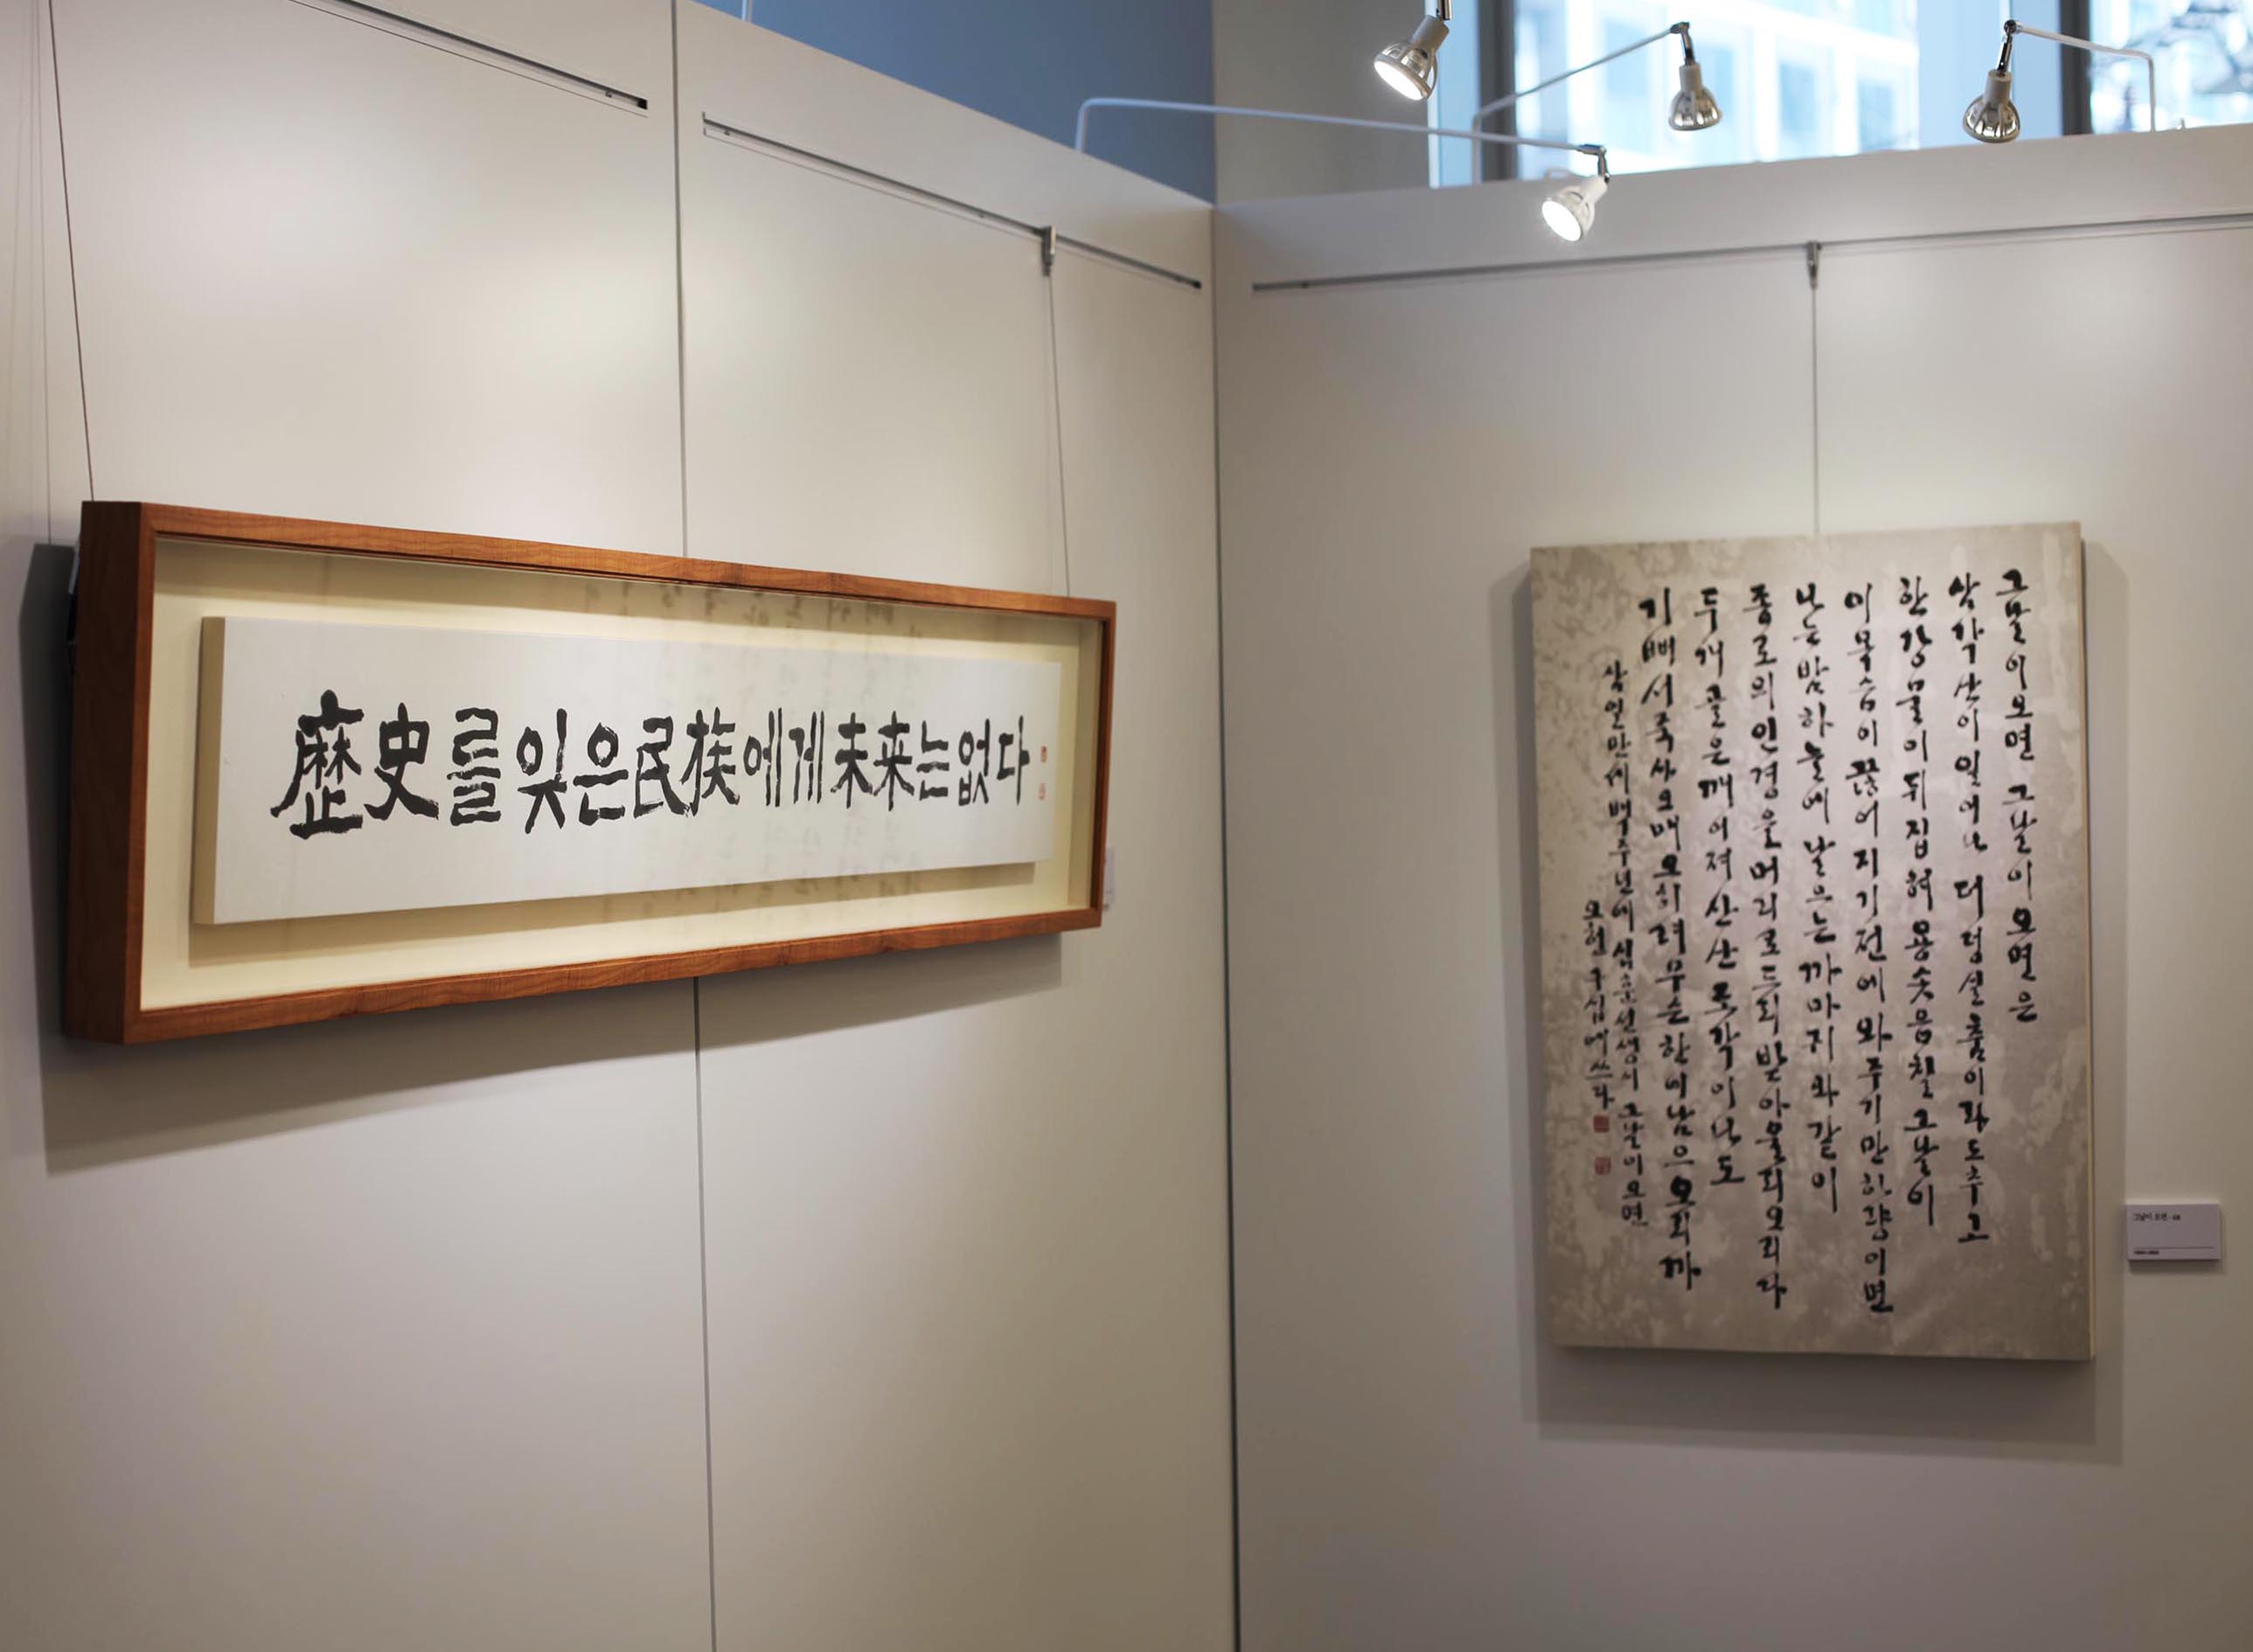 歴史를잊은民族에게未来는없다
그날이오면 그날이오면은
삼각산이일어나 더덩실춤이라도추고
한강물이뒤집혀용솟음칠그날이
이목숨이끊어지기전에와주기만하량이면
나는밤하늘에날으는까마귀와같이
종로의인경을머리로드리받아울리오리다
두개골은깨어져산산조각이나도
기뻐서죽사오매오히려무슨한이남으오리까
삼일만세백주년에심훈선생시 그날이오면
쓰다
그날이 오면